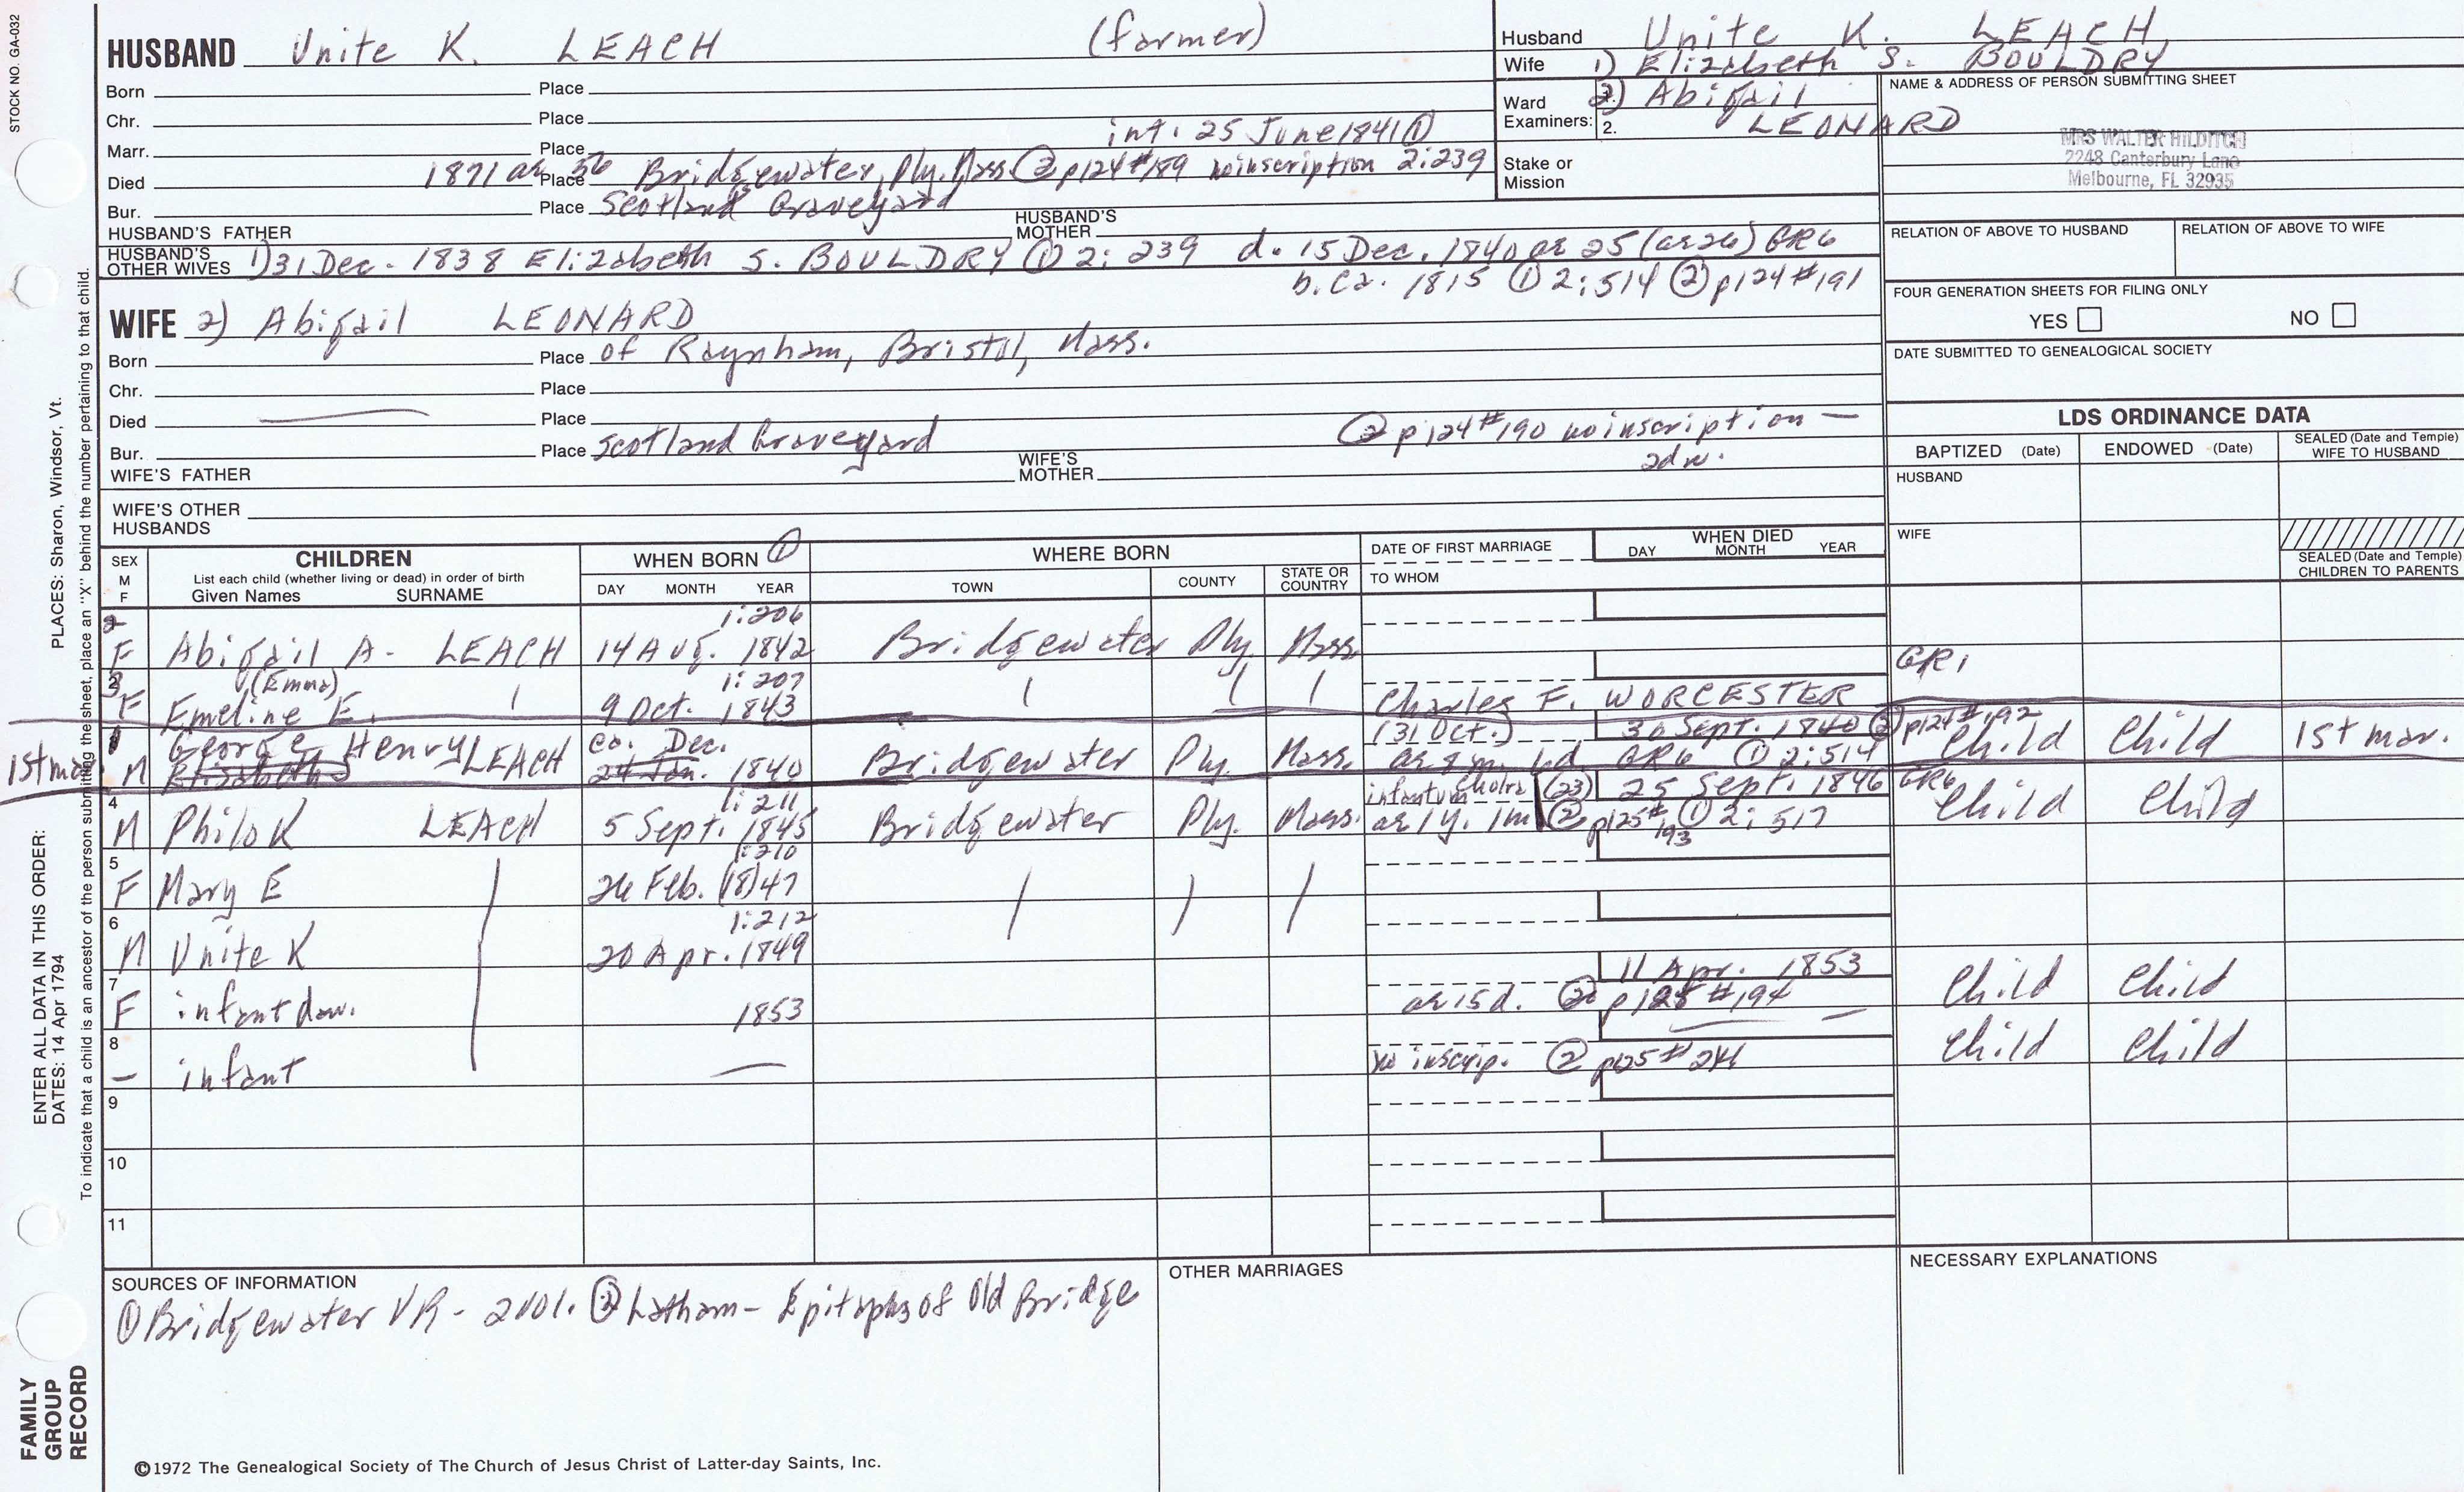 STOCK NO. GA-032
HUSBAND Unite K. LEACH (farmer)
Born Place
Chr. Place
int. 25 June 1841 ①
Marr. Place
Died 1871 ae 56 Place Bridgewater, Ply. Mass ② p124 #189 no inscription 2:239
Bur. Place Scotland Graveyard
HUSBAND'S FATHER HUSBAND'S MOTHER
HUSBAND'S OTHER WIVES 1) 31 Dec. 1838 Elizabeth S. BOULDRY ① 2:239 d. 15 Dec. 1840 ae 25 (ae 26) GR6
b. ca. 1815 ① 2:514 ② p124 #191
WIFE 2) Abigail LEONARD
Born Place of Raynham, Bristol, Mass.
Chr. Place
Died — Place
② p124 #190 no inscription —
Bur. Place Scotland Graveyard
WIFE'S FATHER WIFE'S MOTHER
WIFE'S OTHER HUSBANDS
Husband Unite K. LEACH
Wife 1) Elizabeth S. BOULDRY
2) Abigail LEONARD
Ward Examiners: 1. 2.
Stake or Mission
NAME & ADDRESS OF PERSON SUBMITTING SHEET
MRS WALTER HILDITCH
2248 Canterbury Lane
Melbourne, FL 32935
RELATION OF ABOVE TO HUSBAND RELATION OF ABOVE TO WIFE
FOUR GENERATION SHEETS FOR FILING ONLY
YES NO
DATE SUBMITTED TO GENEALOGICAL SOCIETY
LDS ORDINANCE DATA
BAPTIZED (Date) ENDOWED (Date) SEALED (Date and Temple) WIFE TO HUSBAND
HUSBAND
WIFE
SEALED (Date and Temple) CHILDREN TO PARENTS
SEX M F
CHILDREN
List each child (whether living or dead) in order of birth
Given Names SURNAME
WHEN BORN ①
DAY MONTH YEAR
WHERE BORN
TOWN COUNTY STATE OR COUNTRY
DATE OF FIRST MARRIAGE
TO WHOM
WHEN DIED
DAY MONTH YEAR
2 1:206
F Abigail A. LEACH 14 Aug. 1842 Bridgewater Ply Mass.
GR1
3 (Emma) 1:207
F Emeline E. 9 Oct. 1843 Charles F. WORCESTER
1 George Henry ca. Dec. (31 Oct.) 30 Sept. 1840 ② p124 #192
1st mar M Elizabeth S LEACH 24 Jan. 1840 Bridgewater Ply. Mass. ae 8 m. 4d. GR6 ① 2:514 Child Child 1st mar.
4 1:211 infantum Cholra (23) 25 Sept. 1846 GR6
M Philo K LEACH 5 Sept. 1845 Bridgewater Ply. Mass. ae 1 y. 1m ② p125 #193 ① 2:517 Child Child
5 1:210
F Mary E 26 Feb. (18)47
6 1:212
M Unite K 20 Apr. 1849
7 11 Apr. 1853
F infant dau. 1853 ae 15 d. ② p125 #194 Child Child
8
— infant — no inscrip. ② p125 # Child Child
9
10
11
SOURCES OF INFORMATION
① Bridgewater VR - 2 vol. ② Latham - Epitaphs of Old Bridge
OTHER MARRIAGES
NECESSARY EXPLANATIONS
©1972 The Genealogical Society of The Church of Jesus Christ of Latter-day Saints, Inc.
PLACES: Sharon, Windsor, Vt.
To indicate that a child is an ancestor of the person submitting the sheet, place an "X" behind the number pertaining to that child.
ENTER ALL DATA IN THIS ORDER:
DATES: 14 Apr 1794
FAMILY GROUP RECORD